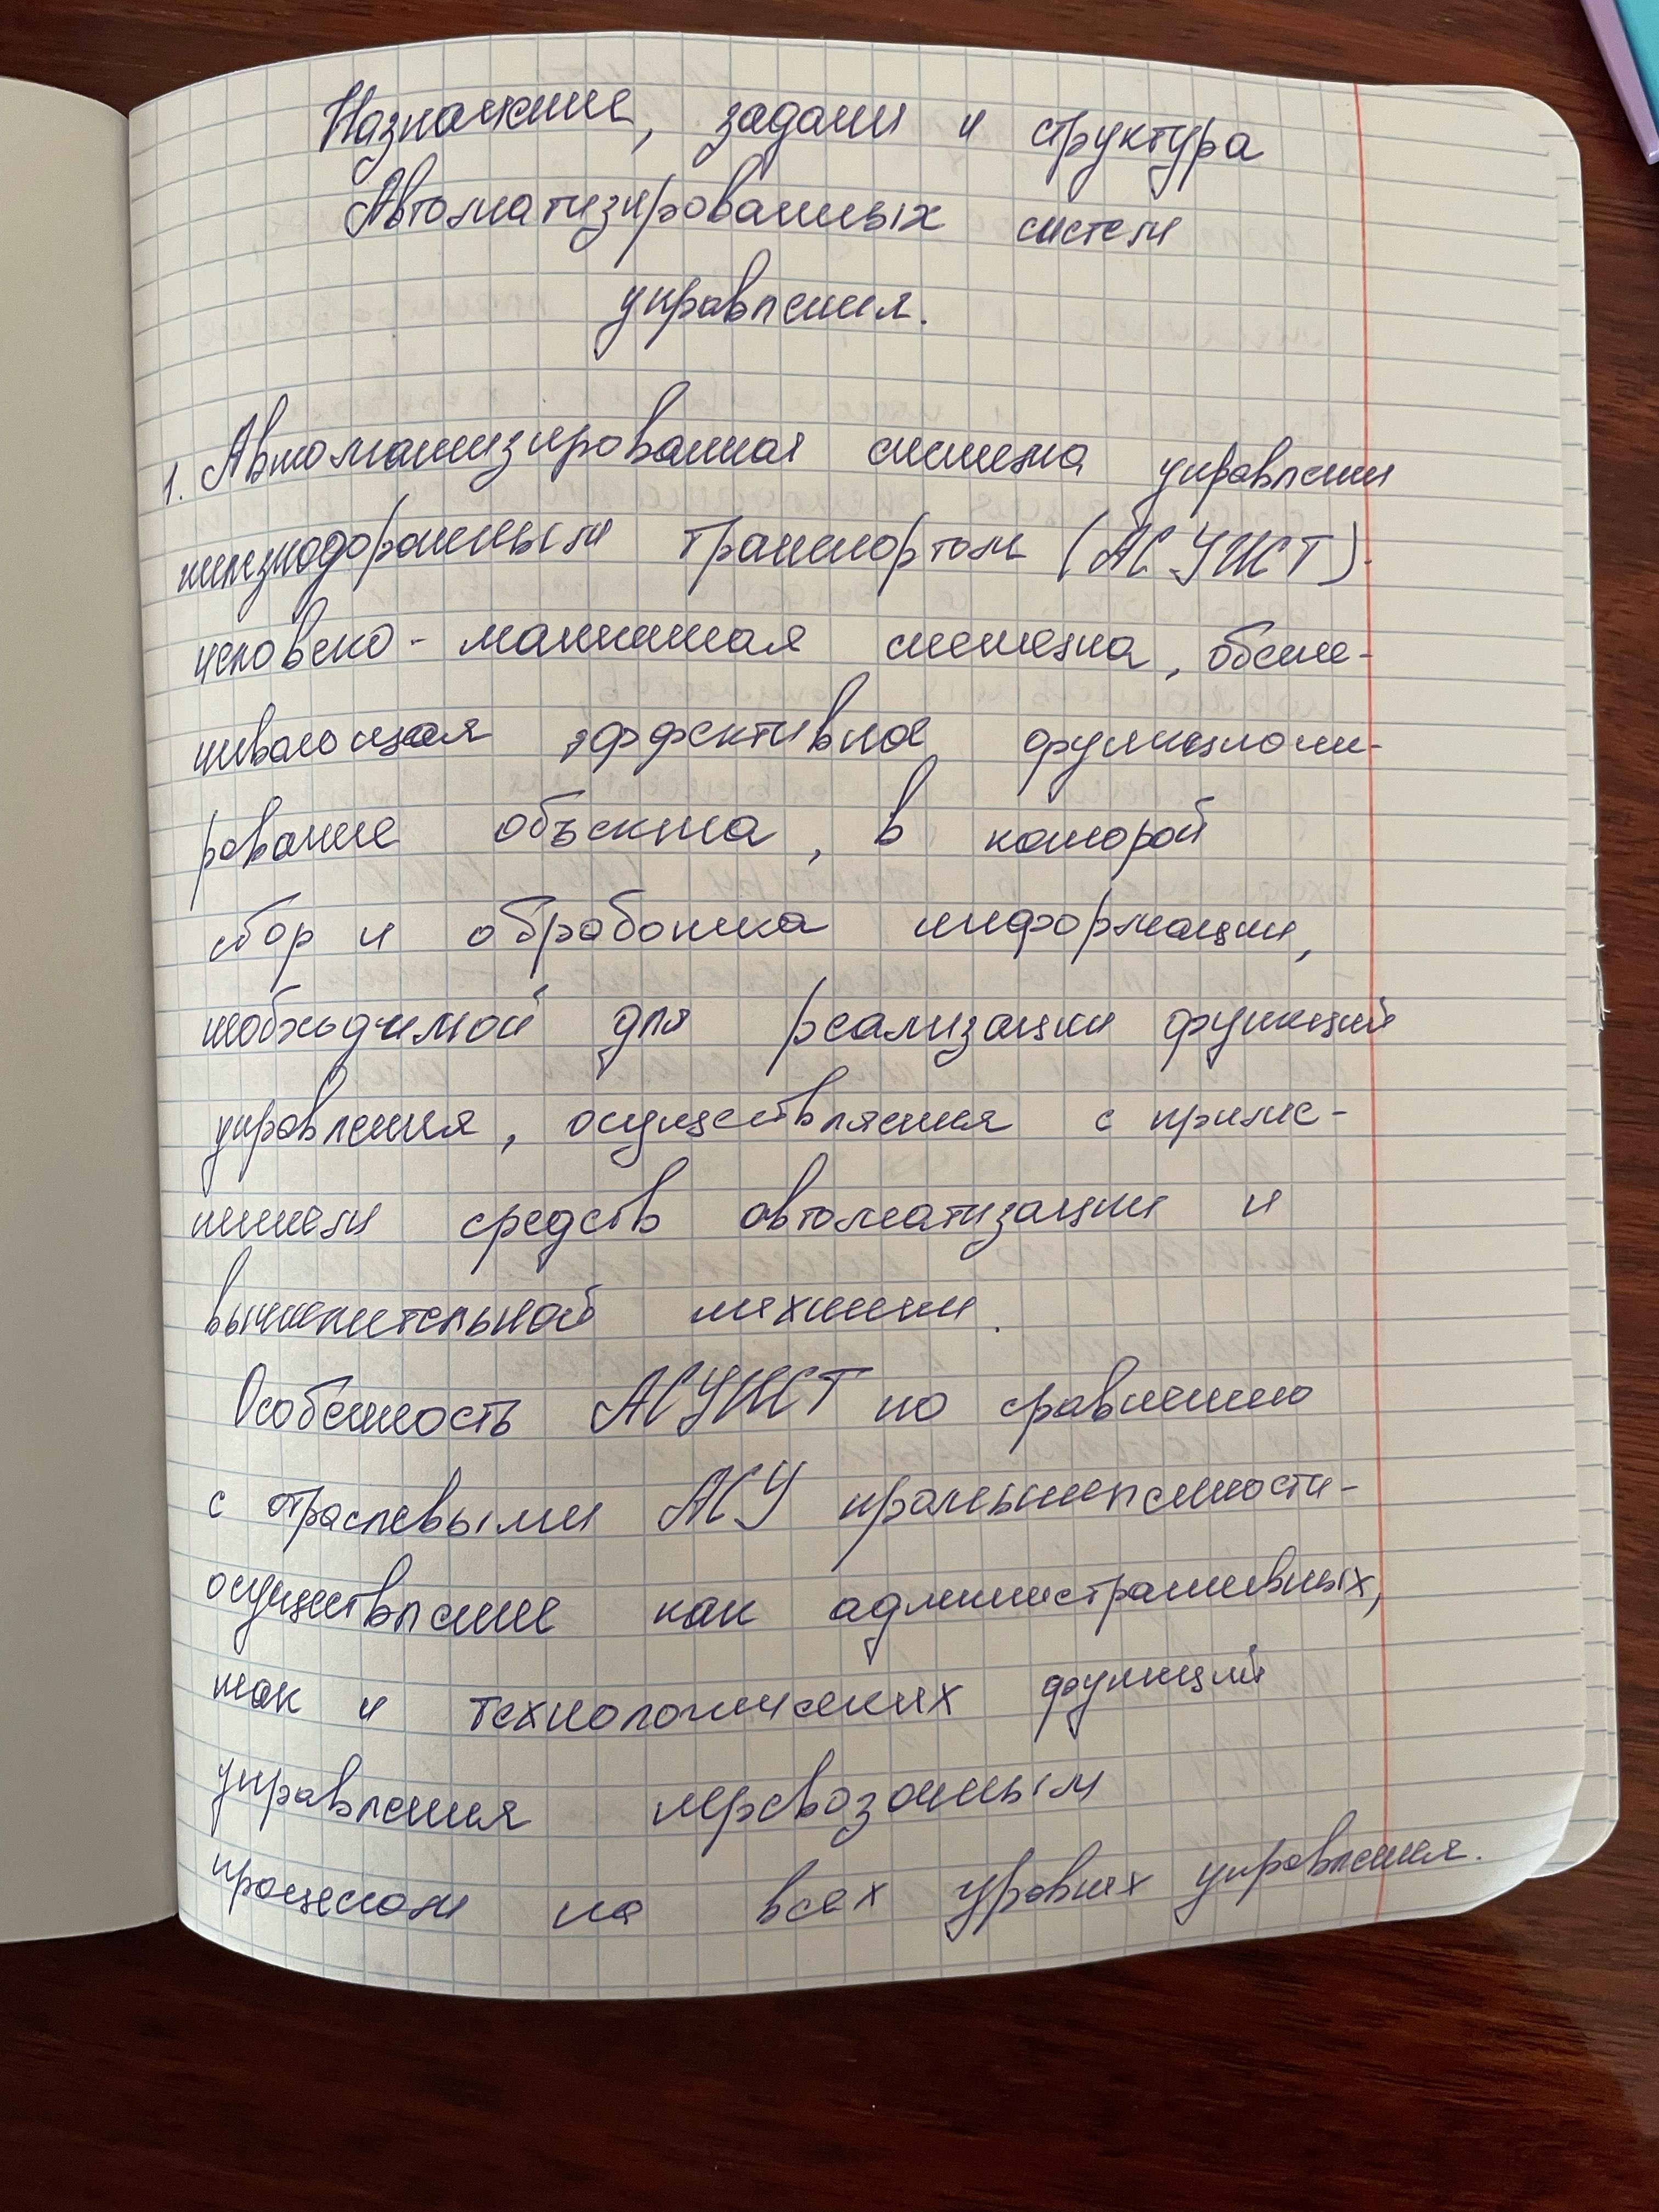 Назначение, задачи и структура
Автоматизированных систем
управления.
1. Автоматизированная система управления
железнодорожным транспортом (АСУЖТ)-
человеко-машинная система, обеспе-
чивающая эффективное функциони-
рование объекта, в которой
сбор и обработка информации,
необходимой для реализации функций
управления, осуществления с приме-
нием средств автоматизации и
вычислительной техники.
Особенность АСУЖТ по сравнению
с отраслевыми АСУ промышленности-
осуществление как административных,
так и технологических функций
управления перевозочным
процессом на всех уровнях управления.